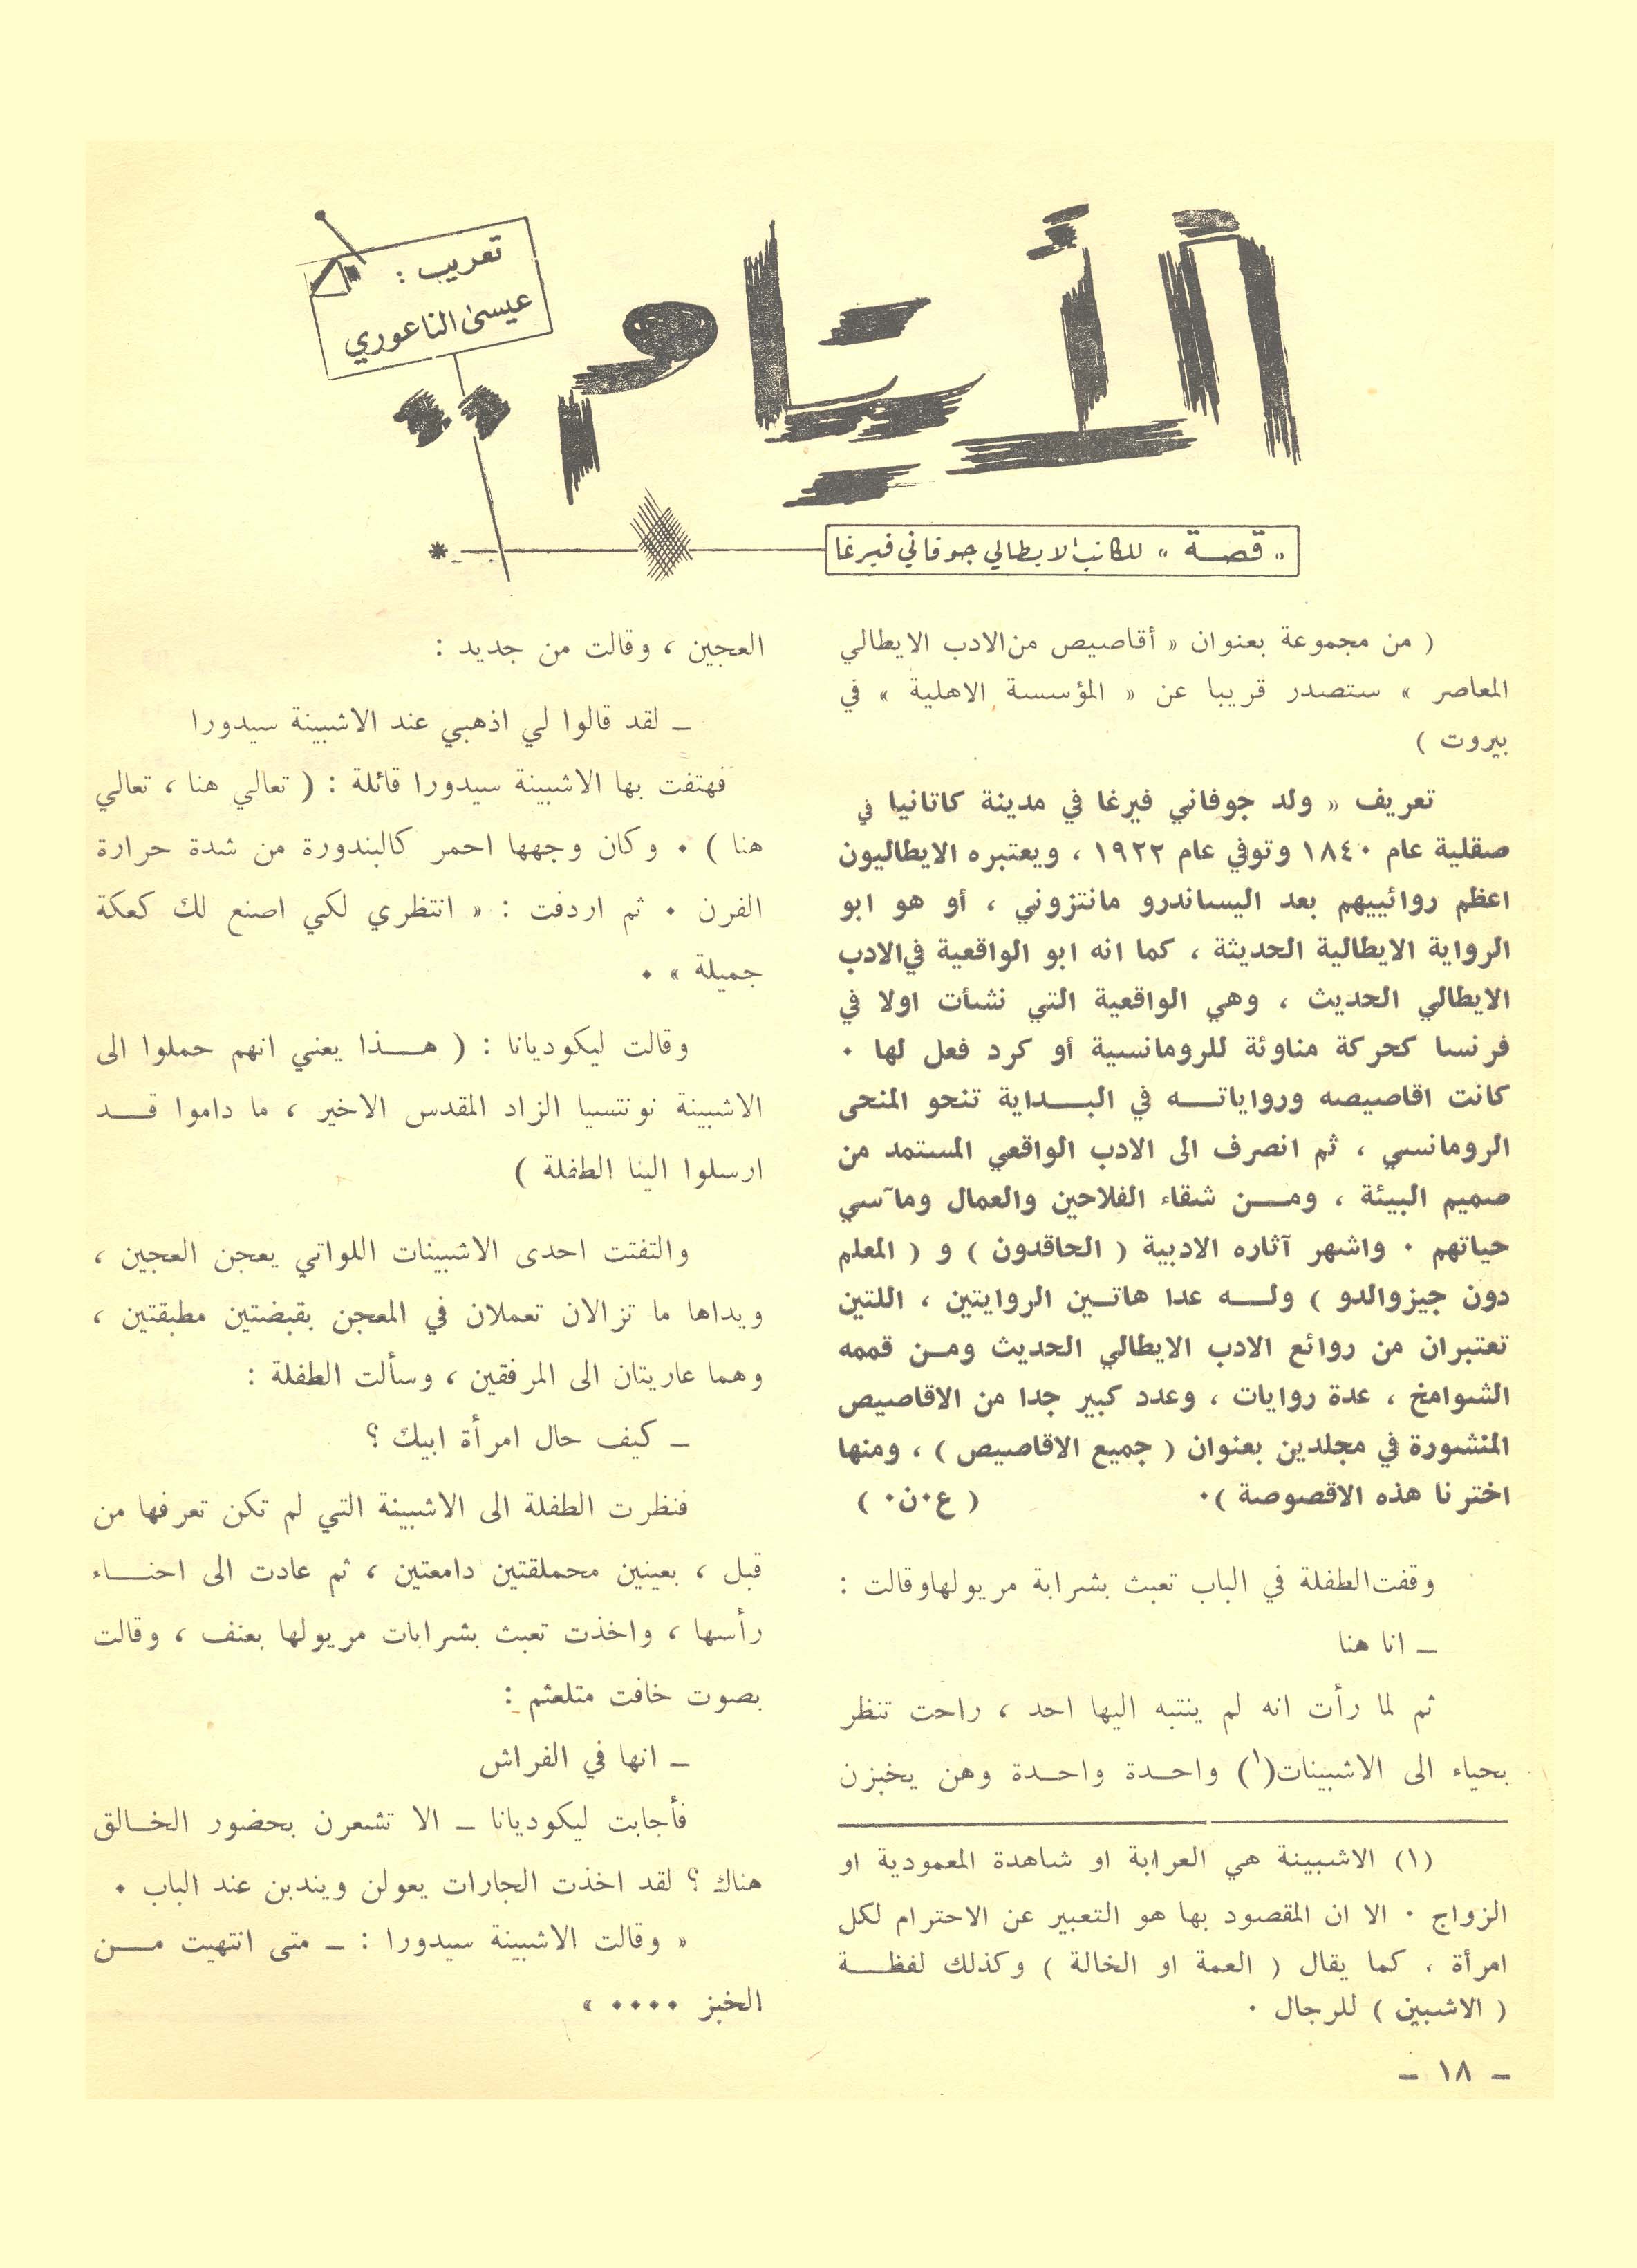 الأيتام ..
تعريب :
عيسى الناعوري
« قصة » للكاتب الايطالي جوفاني فيرغا
( من مجموعة بعنوان « أقاصيص من الادب الايطالي
المعاصر » ستصدر قريبا عن « المؤسسة الاهلية » في
بيروت )
تعريف « ولد جوفاني فيرغا في مدينة كاتانيا في
صقلية عام ١٨٤٠ وتوفي عام ١٩٢٢ ، ويعتبره الايطاليون
اعظم روائييهم بعد اليساندرو مانتزوني ، أو هو ابو
الرواية الايطالية الحديثة ، كما انه ابو الواقعية في الادب
الايطالي الحديث ، وهي الواقعية التي نشأت اولا في
فرنسا كحركة مناوئة للرومانسية أو كرد فعل لها ٠
كانت اقاصيصه ورواياتـــه في البـــداية تنحو المنحى
الرومانسي ، ثم انصرف الى الادب الواقعي المستمد من
صميم البيئة ، ومـــن شقاء الفلاحين والعمال ومآسي
حياتهم ٠ واشهر آثاره الادبية ( الحاقدون ) و ( المعلم
دون جيزوالدو ) ولـــه عدا هاتـين الروايتين ، اللتين
تعتبران من روائع الادب الايطالي الحديث ومـن قممه
الشوامخ ، عدة روايات ، وعدد كبير جدا من الاقاصيص
المنشورة في مجلدين بعنوان ( جميع الاقاصيص ) ، ومنها
اخترنا هذه الاقصوصة )٠ ( ع٠ن٠ )
وقفت الطفلة في الباب تعبث بشرابة مريولها وقالت :
ـ انا هنا
ثم لما رأت انه لم ينتبه اليها احد ، راحت تنظر
بحياء الى الاشبينات(١) واحـدة واحـدة وهن يخبزن
(١) الاشبينة هي العرابة او شاهدة المعمودية او
الزواج ٠ الا ان المقصود بها هو التعبير عن الاحترام لكل
امرأة ، كما يقال ( العمة او الخالة ) وكذلك لفظـــة
( الاشبين ) للرجال ٠
العجين ، وقالت من جديد :
ـ لقد قالوا لي اذهبي عند الاشبينة سيدورا
فهتفت بها الاشبينة سيدورا قائلة : ( تعالي هنا ، تعالي
هنا ) ٠ وكان وجهها احمر كالبندورة من شدة حرارة
الفرن ٠ ثم اردفت : « انتظري لكي اصنع لك كعكة
جميلة » ٠
وقالت ليكوديانا : ( هـــذا يعني انهم حملوا الى
الاشبينة نونتسيا الزاد المقدس الاخير ، ما داموا قـــد
ارسلوا الينا الطفلة )
والتفتت احدى الاشبينات اللواتي يعجن العجين ،
ويداها ما تزالان تعملان في المعجن بقبضتين مطبقتين ،
وهما عاريتان الى المرفقين ، وسألت الطفلة :
ـ كيف حال امرأة ابيك ؟
فنظرت الطفلة الى الاشبينة التي لم تكن تعرفها من
قبل ، بعينين محملقتين دامعتين ، ثم عادت الى احنـــاء
رأسها ، واخذت تعبث بشرابات مريولها بعنف ، وقالت
بصوت خافت متلعثم :
ـ انها في الفراش
فأجابت ليكوديانا ـ الا تشعرن بحضور الخـالق
هناك ؟ لقد اخذت الجارات يعولن ويندبن عند الباب ٠
« وقالت الاشبينة سيدورا : ـ متى انتهيت مـــن
الخبز ٠٠٠٠ »
ـ ١٨ ـ